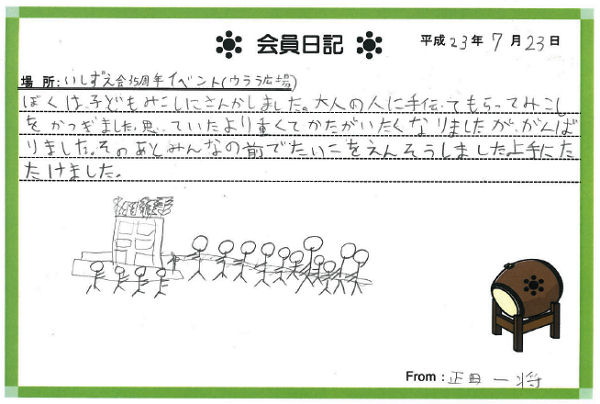 会員日記
平成23年7月23日
場所:いしずえ会35周年イベント(ウララ広場)
ぼくは、子どもみこしにさんかしました。大人の人に手伝ってもらってみこし
をかつぎました。思っていたより重くてかたがいたくなりましたが、がんば
りました。そのあとみんなの前でたいこをえんそうしました。上手にた
たけました。
From:正田 一将